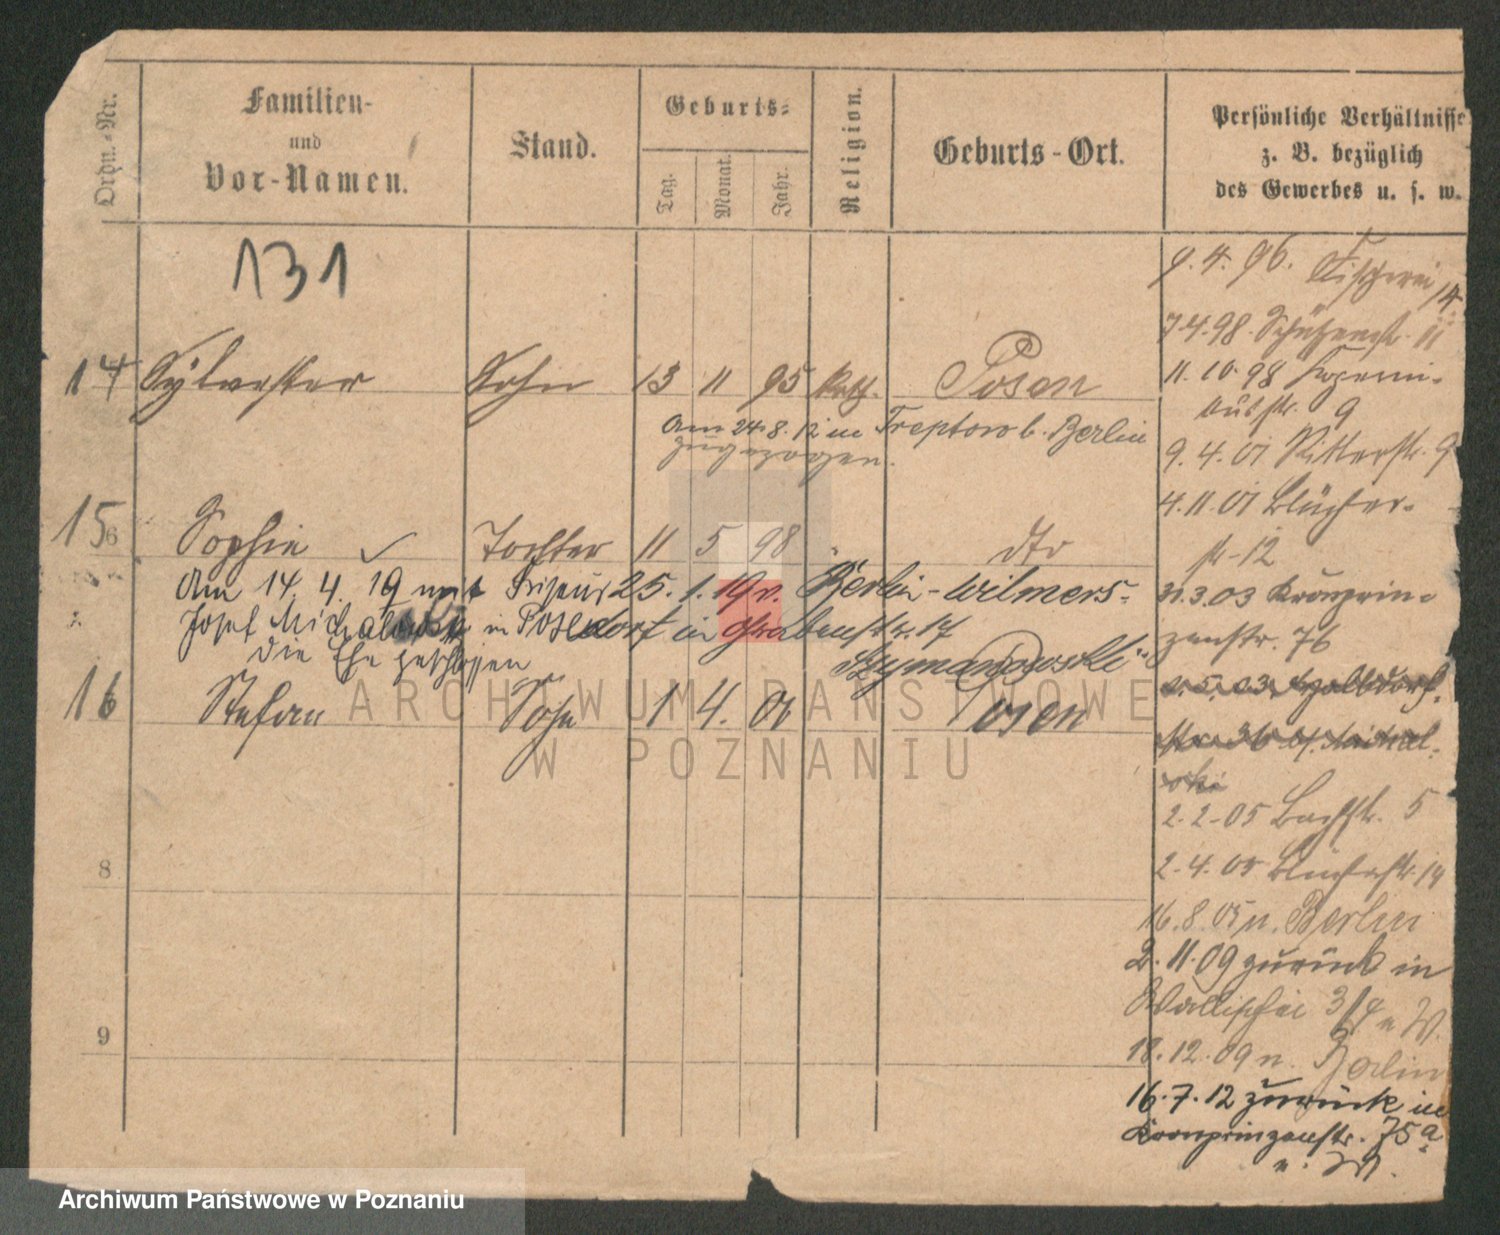 Ordn.-Nr.
Familien-
und
Vor-Namen.
Stand.
Geburts-
Tag.
Monat.
Jahr.
Religion.
Geburts-Ort.
Persönliche Verhältnisse
z. B. bezüglich
des Gewerbes u. s. w.
131
14 Sylvester Sohn 13 11 95 kath. Posen
Am 24.8.12 in Treptow b. Berlin
zugezogen.
15 6 Sophie ✓ Tochter 11 5 98 dto
Am 14. 4. 19 mit Friseur
Josef in Posen
die Ehe geschlossen
25. 1. 19 v. Berlin-Wilmers-
dorf in Grabenstr. 17
Szymanowski
16 Stefan Sohn 1 4. 01 Posen
8
9
9. 4. 96. Fischerei 14
7.4.98. Schützenstr. 11
11. 10. 98
9
9. 4. 01 Ritterstr. 9
4. 11. 01 Blücher-
str. 12
31.3.03 Kronprin-
zenstr. 76
2. 2. 05 Bachstr. 5
2. 4. 05 Blücherstr. 14
16. 8. 05 n. Berlin
2. 11. 09 zurück in
Wallischei 3/4
18. 12. 09 n. Berlin
16. 7. 12 zurück in
Kronprinzenstr. 75a
ARCHIWUM PAŃSTWOWE
W POZNANIU
Archiwum Państwowe w Poznaniu